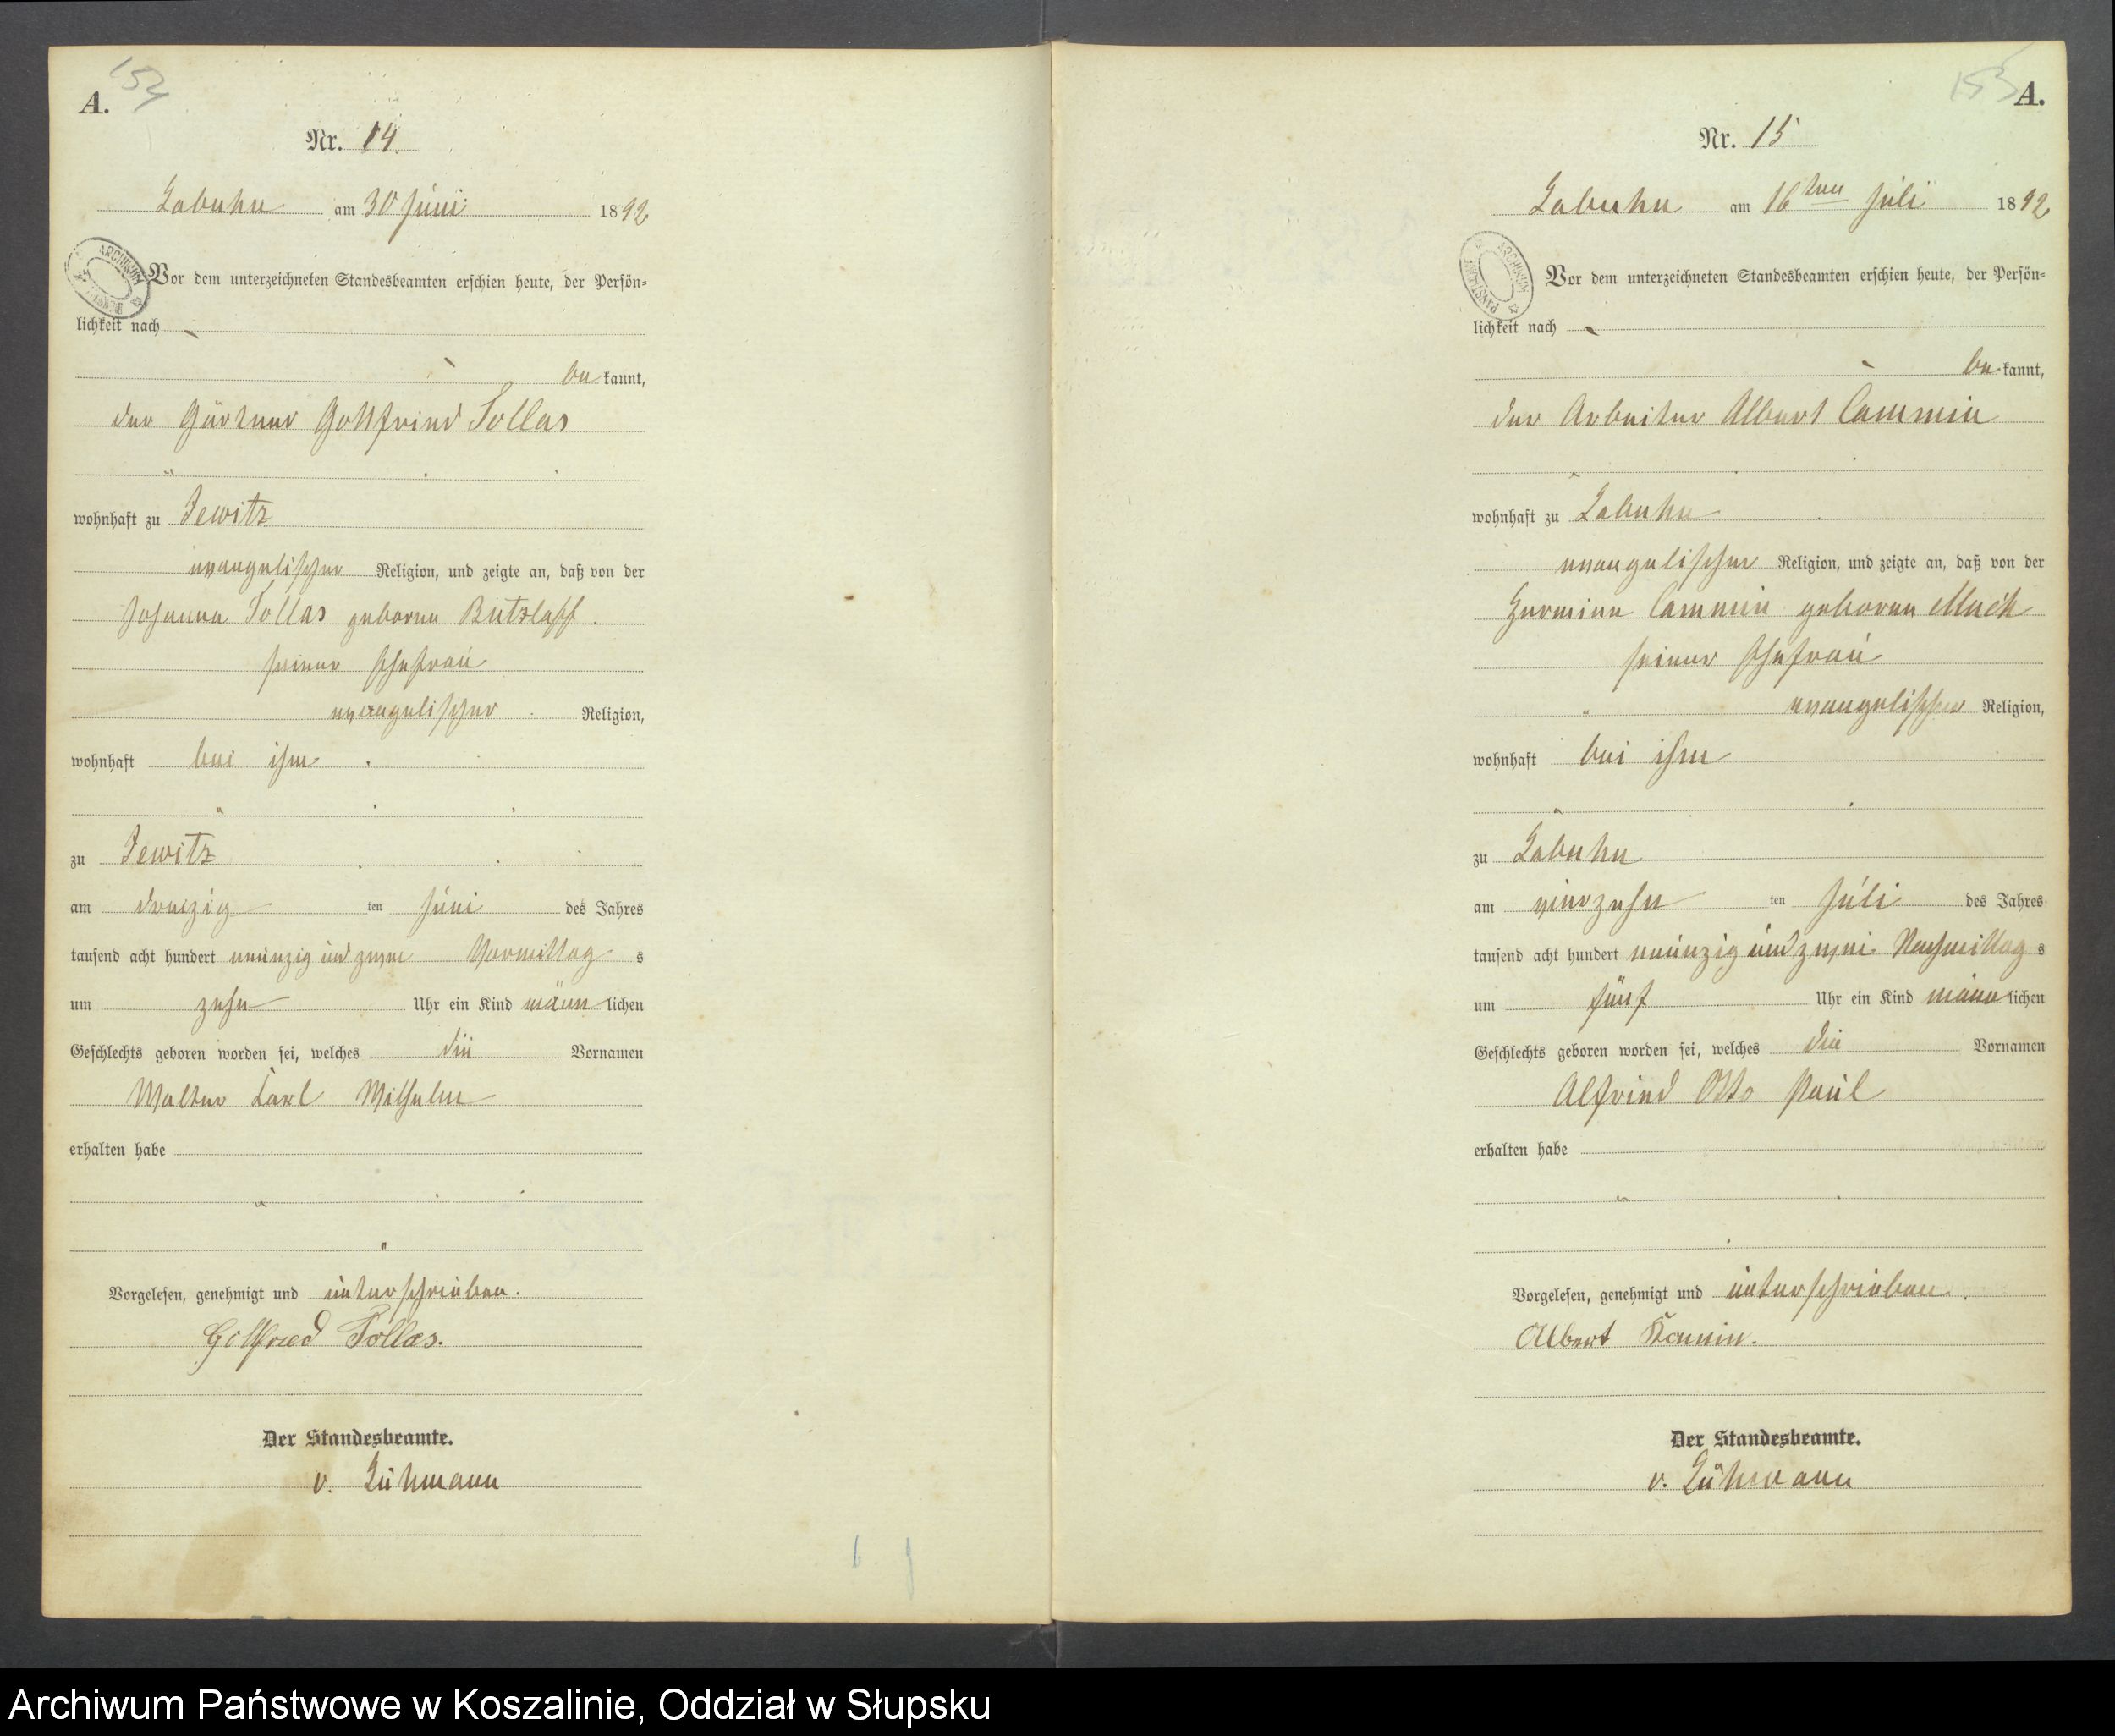 154
A.
Nr. 14.
Labuhn am 30 Juni 1892
Vor dem unterzeichneten Standesbeamten erschien heute, der Persön=
lichkeit nach
be kannt,
der Gärtner Gottfried Tollas
wohnhaft zu Jewitz
evangelischer Religion, und zeigte an, daß von der
Johanna Tollas geborne Butzlaff.
seiner Ehefrau
evangelischer Religion,
wohnhaft bei ihm
zu Jewitz
am dreizig ten Juni des Jahres
tausend acht hundert neunzig und zwei Vormittag s
um zehn Uhr ein Kind männ lichen
Geschlechts geboren worden sei, welches die Vornamen
Walter Carl Wilhelm
erhalten habe
Vorgelesen, genehmigt und unterschrieben.
Gottfried Tollas.
Der Standesbeamte.
v. Lühmann
155
A.
Nr. 15
Labuhn am 16ten Juli 1892
Vor dem unterzeichneten Standesbeamten erschien heute, der Persön=
lichkeit nach
be kannt,
der Arbeiter Albert Cammin
wohnhaft zu Labuhn
evangelischer Religion, und zeigte an, daß von der
Hermine Cammin geboren Muck
seiner Ehefrau
evangelischer Religion,
wohnhaft bei ihm
zu Labuhn
am vierzehn ten Juli des Jahres
tausend acht hundert neunzig und zwei Nachmittag s
um fünf Uhr ein Kind männ lichen
Geschlechts geboren worden sei, welches die Vornamen
Alfried Otto Paul
erhalten habe
Vorgelesen, genehmigt und unterschrieben.
Albert Kamin.
Der Standesbeamte.
v. Lühmann
Archiwum Państwowe w Koszalinie, Oddział w Słupsku